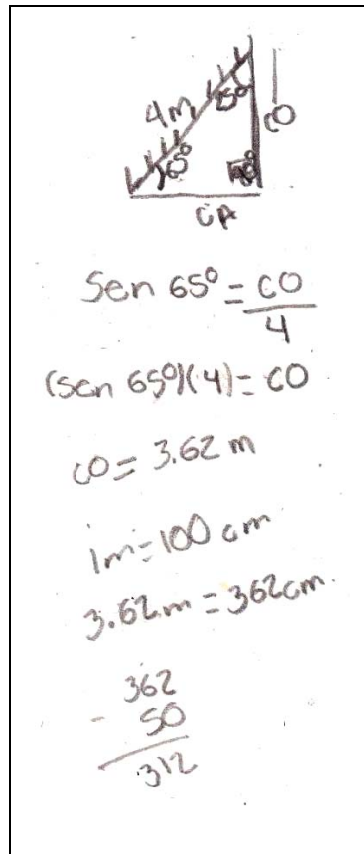 4m 25° CO
65° 90°
CA
Sen 65° = CO
4
(sen 65°)(4) = CO
CO = 3.62 m
1m = 100 cm
3.62m = 362cm.
362
- 50
312